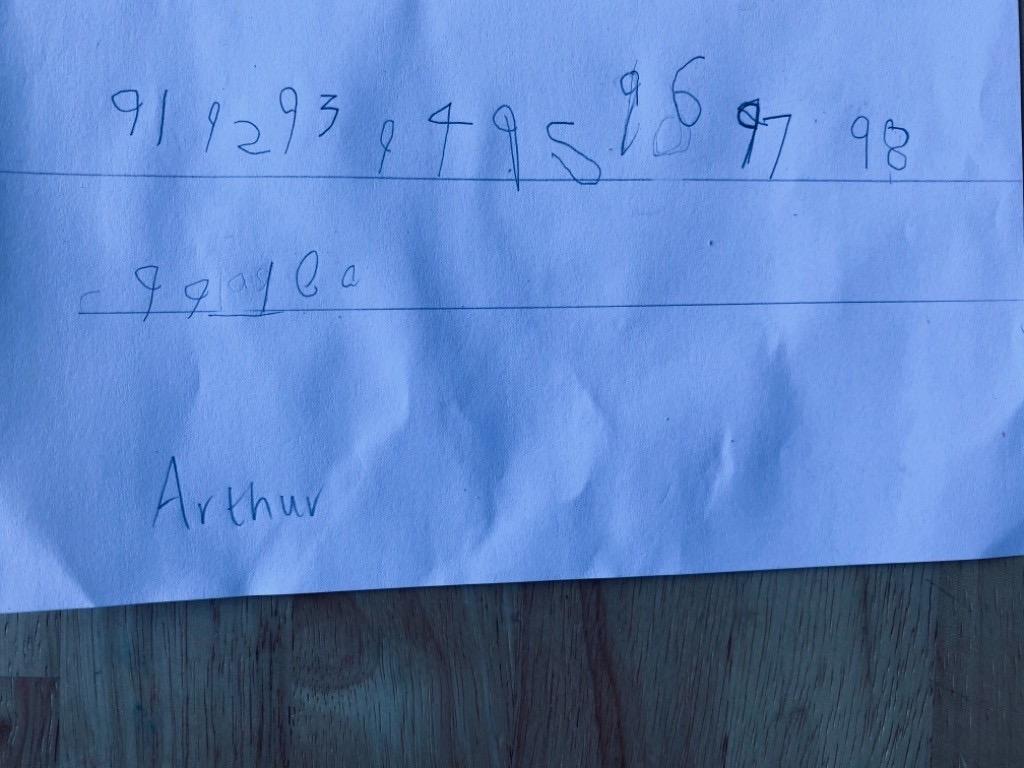 91 92 93 94 95 96 97 98
99 100
Arthur